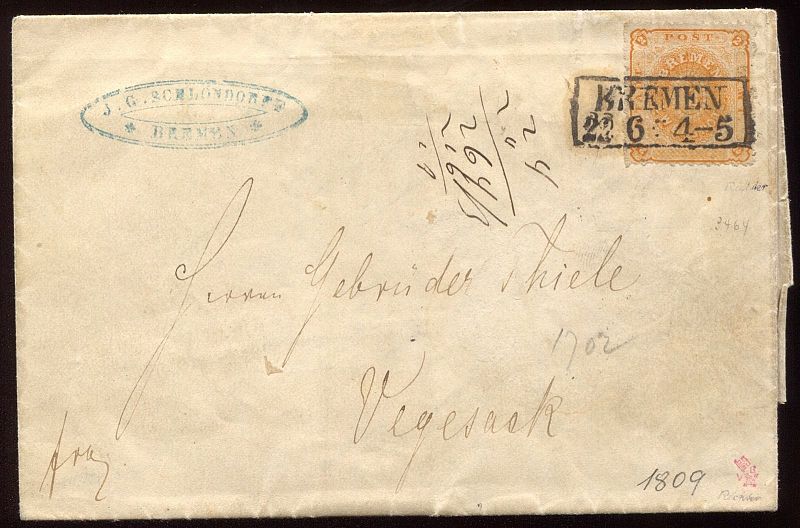 POST
2 2
BREMEN
BREMEN
22 6 4-5
J. G. SCHLÖNDORFF
* BREMEN *
Richter
3464
Herren Gebrüder Thiele
1702
Vegesack
franz
1809
Richter